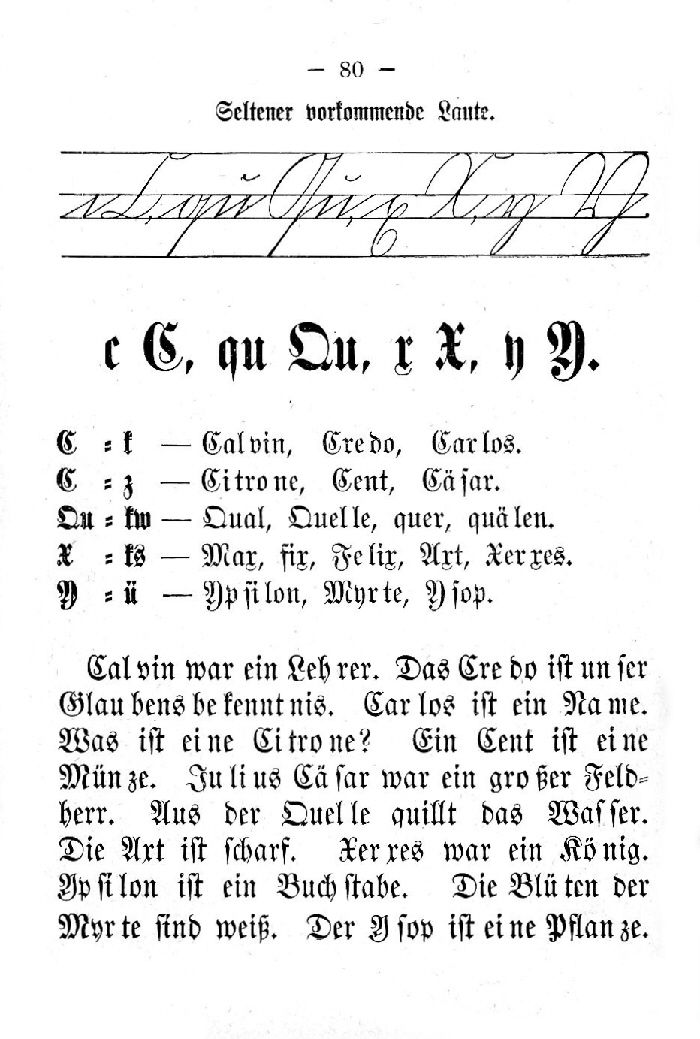 — 80 —
Seltener vorkommende Laute.
c C, qu Qu, x X, y Y
c C, qu Qu, x X, y Y.
C = k — Calvin, Credo, Carlos.
C = z — Citrone, Cent, Cäsar.
Qu = kw — Qual, Quelle, quer, quälen.
X = ks — Max, fix, Felix, Axt, Xerxes.
Y = ü — Ypsilon, Myrte, Ysop.
Calvin war ein Lehrer. Das Credo ist unser
Glaubensbekenntnis. Carlos ist ein Name.
Was ist eine Citrone? Ein Cent ist eine
Münze. Julius Cäsar war ein großer Feld=
herr. Aus der Quelle quillt das Wasser.
Die Axt ist scharf. Xerxes war ein König.
Ypsilon ist ein Buchstabe. Die Blüten der
Myrte sind weiß. Der Ysop ist eine Pflanze.